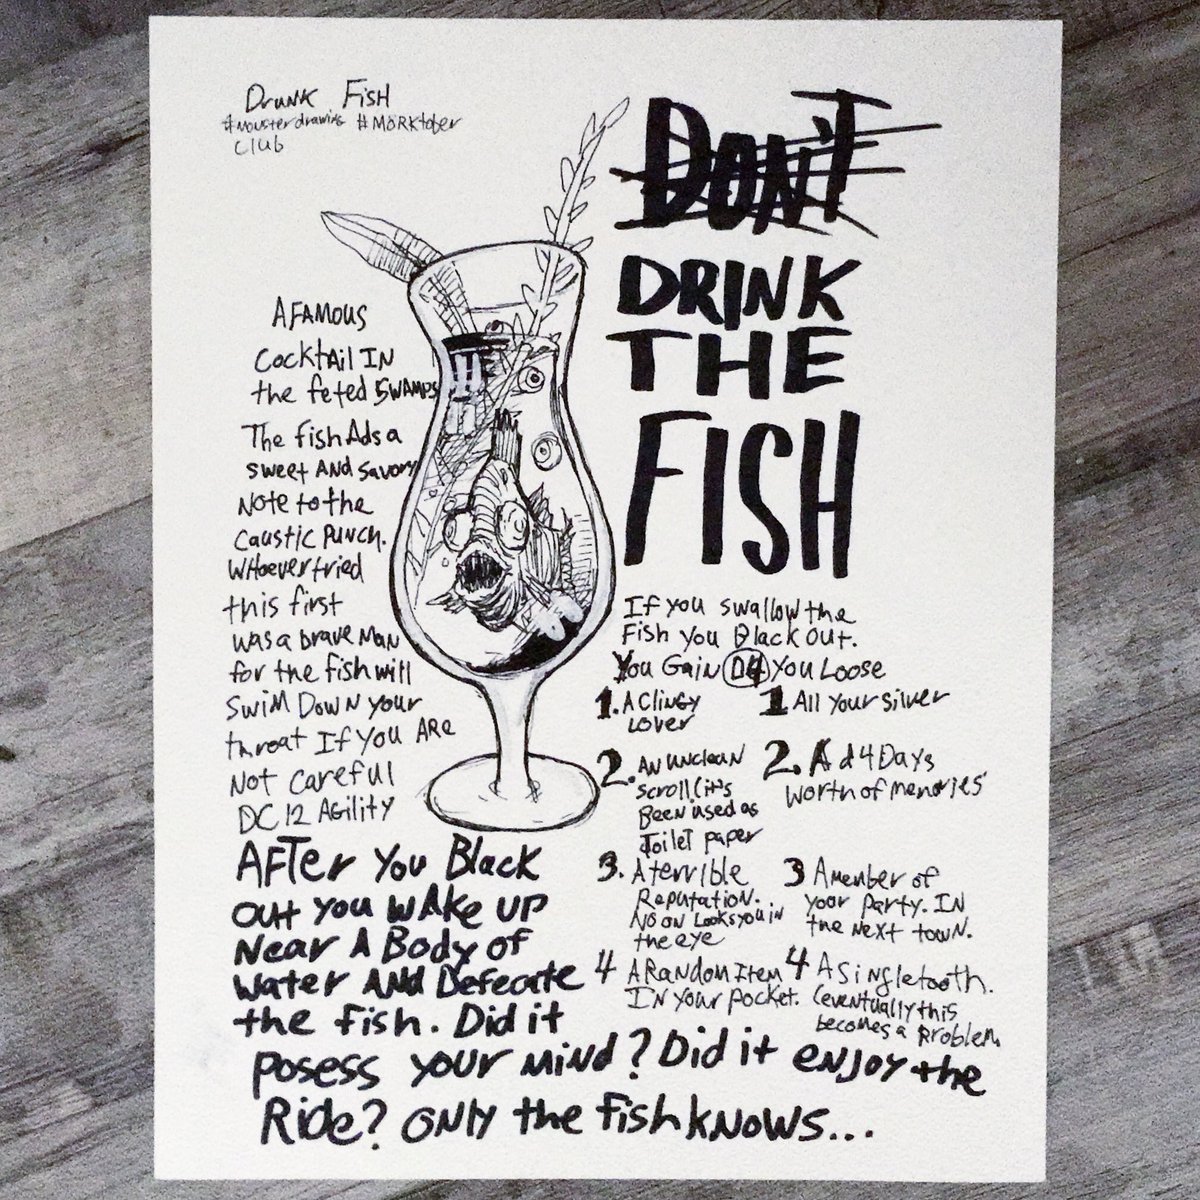 Drunk Fish
#Monsterdrawing #MÖRKtober
club
DON'T
DRINK
THE
FISH
A FAMOUS
Cocktail IN
the feted SWAMPS
The fish Ads a
sweet AND savory
Note to the
caustic punch.
Whoever tried
this first
was a brave Man
for the fish will
swim DOWN your
throat If you ARE
Not careful
DC 12 Agility
If you swallow the
Fish you Black out.
You Gain D4 you Loose
1. A Clingy
Lover
1 All your silver
2. AN unclean
scroll (it's
Been used as
Toilet paper
2. A d4 Days
worth of memories
3. A terrible
Reputation.
No on Looks you in
the eye
3 A member of
your party. IN
the next town.
4 A Random Item
IN your pocket.
4 A single tooth.
(eventually this
becomes a problem
After you Black
out you wake up
Near A Body of
water AND Defecate
the fish. Did it
posess your mind? Did it enjoy the
Ride? Only the fish knows...